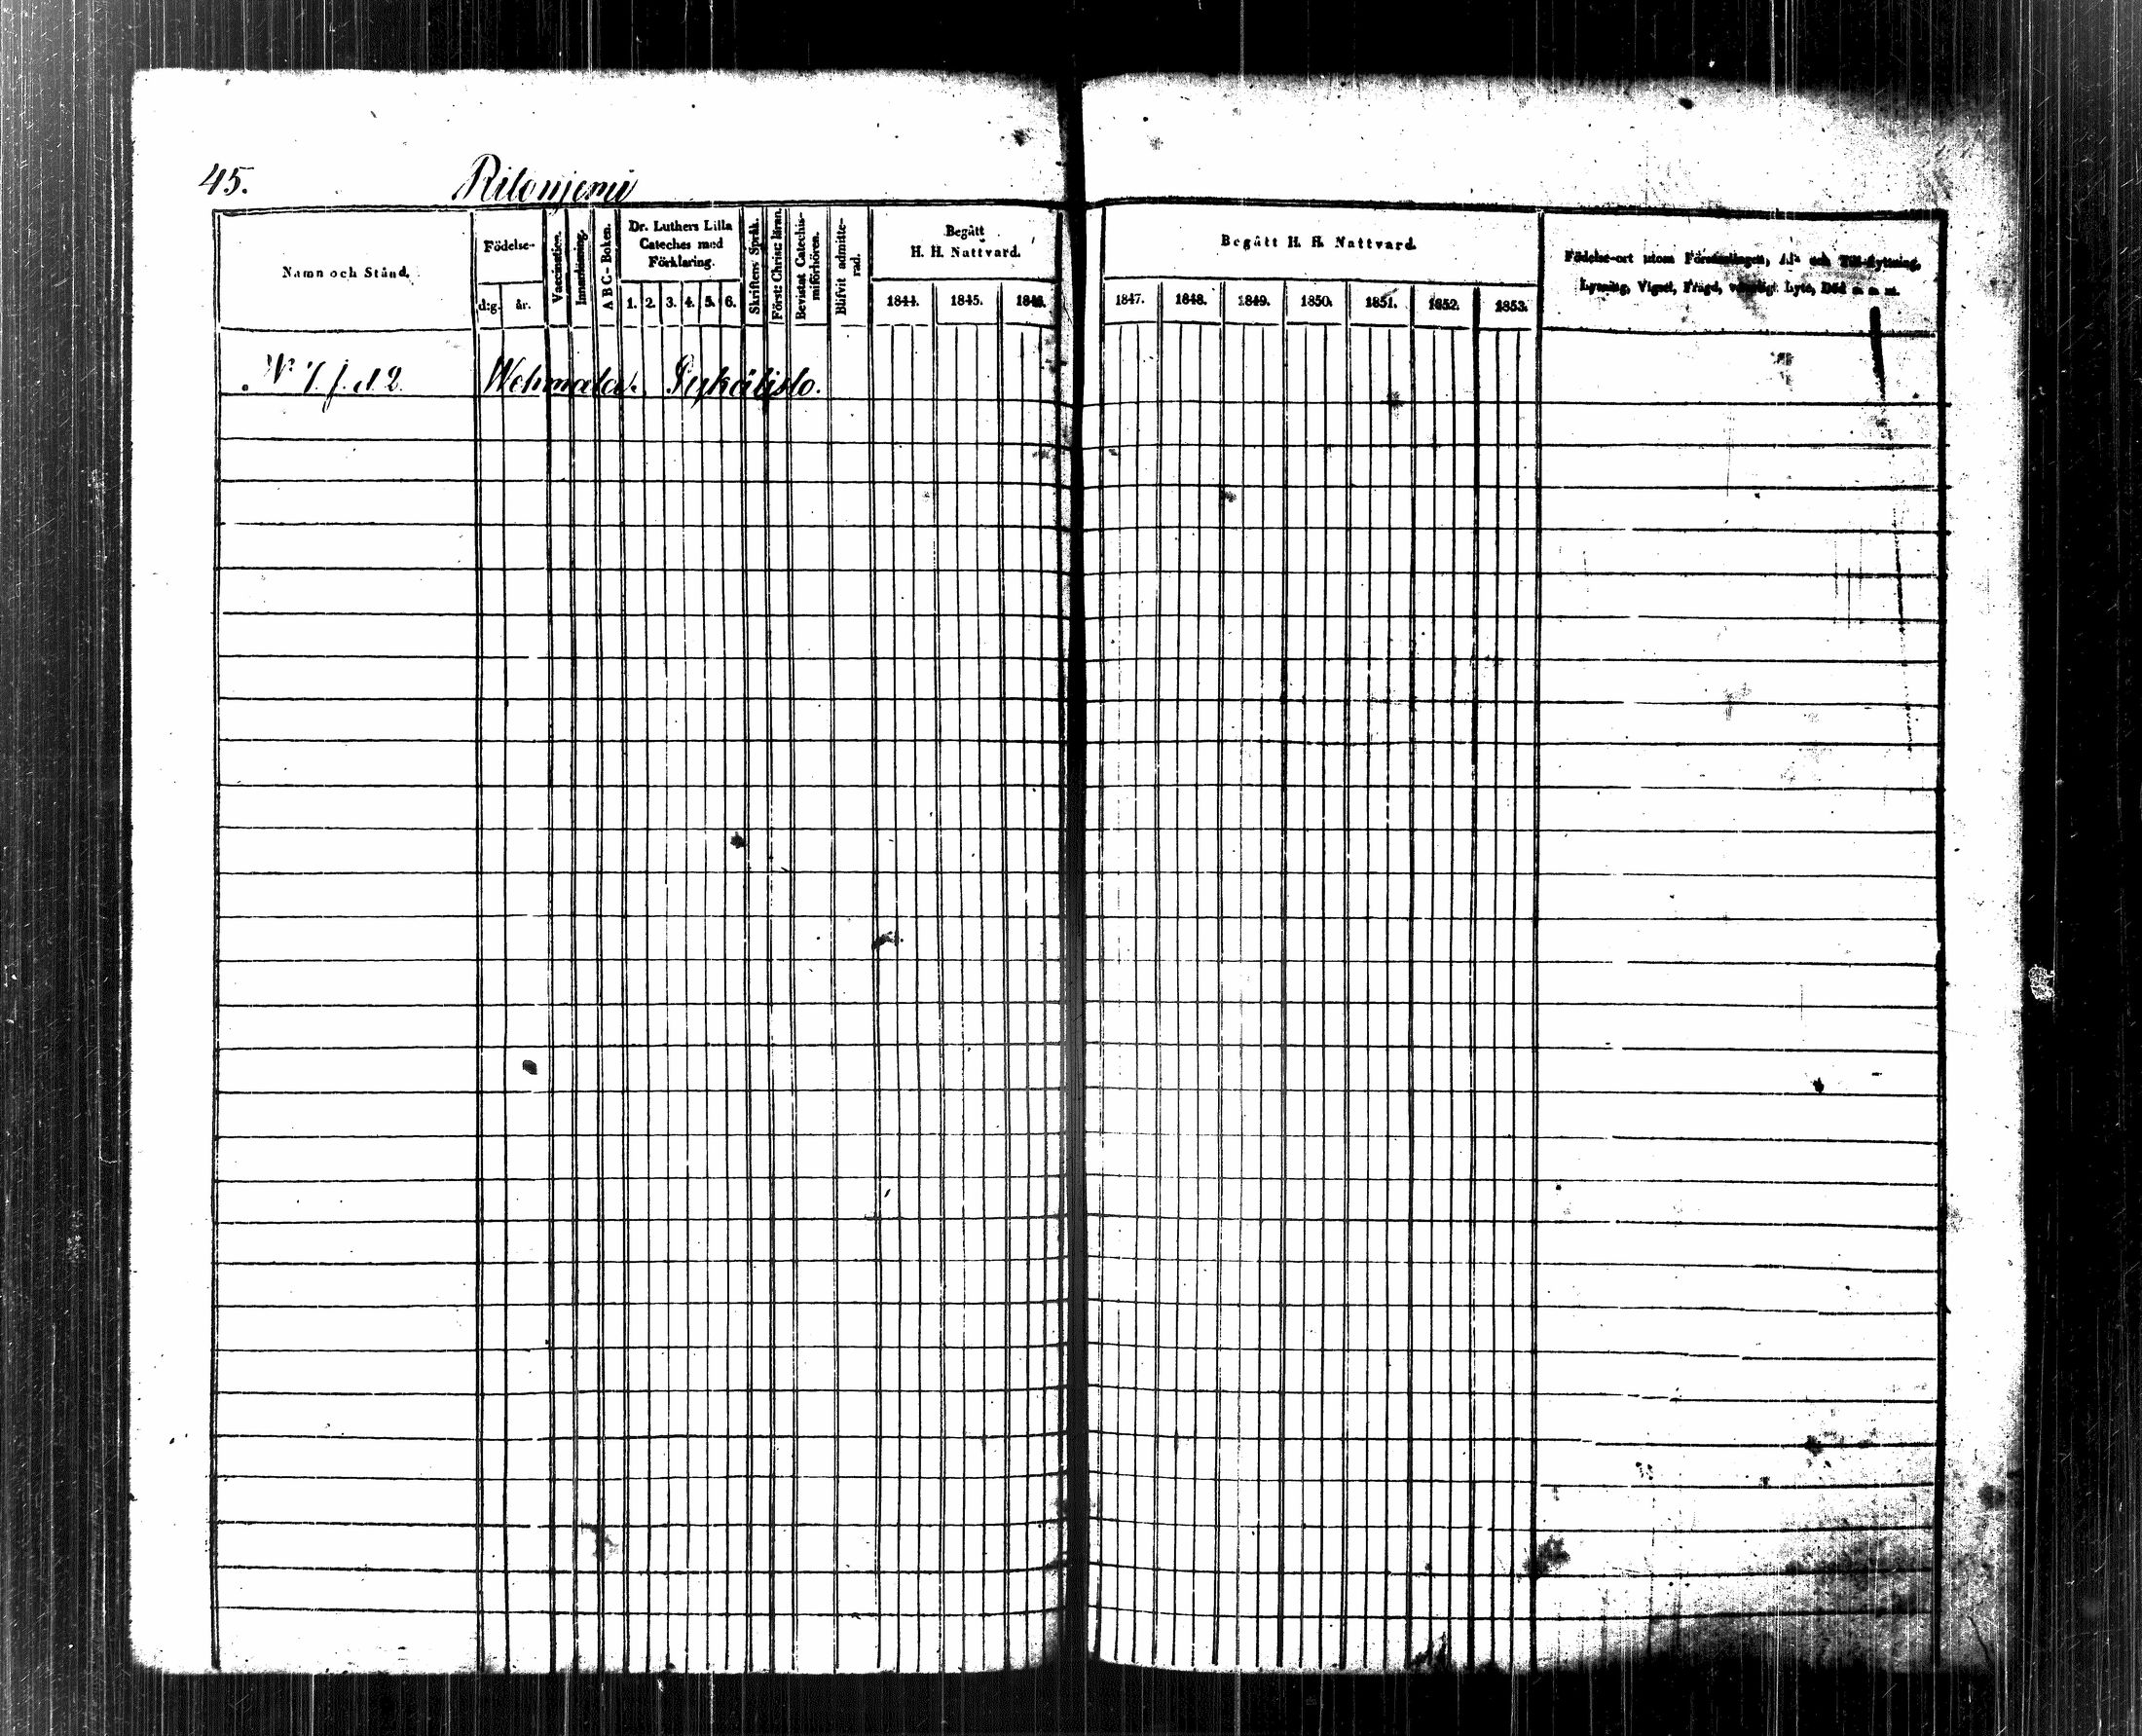 45. Rilonjemi
Namn och Stånd.
Födelse-
d:g.
år.
Vaccination.
Innanläsning.
A B C - Boken.
Dr. Luthers Lilla
Cateches med
Förklaring.
1. 2. 3. 4. 5. 6.
Skriftens Språk.
Först: Christ: läran.
Bevistat Catechis-
miförhören.
Blifvit admitte-
rad.
Begått
H. H. Nattvard.
1844. 1845. 1846.
Begått H. H. Nattvard.
1847. 1848. 1849. 1850. 1851. 1852. 1853.
Födelse-ort utom Församlingen, Af- och Till-flyttning,
Lysning, Vigsel, Frägd, Lyte, Död m. m. m.
Wehmala. Sykälistö.